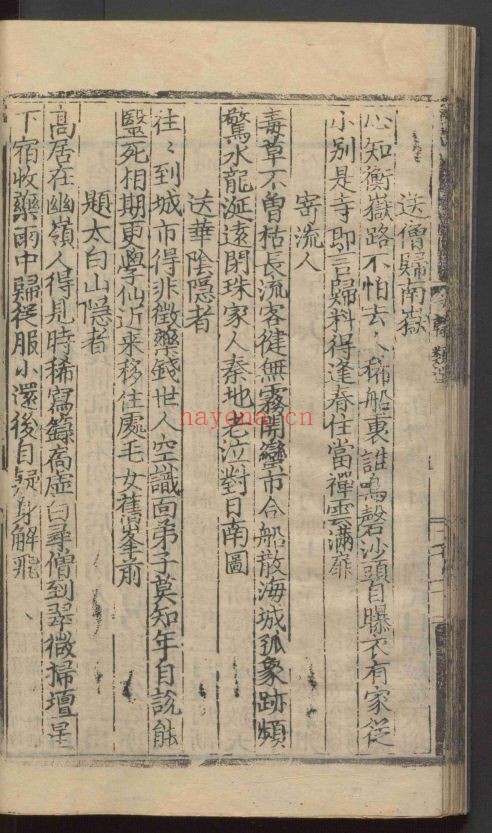 送僧歸南嶽
心知衡嶽路不怕去人稀船裏誰鳴磬沙頭自曝衣有家從
小别是寺即言歸料得逢春住當禪雲滿扉
寄流人
毒草不曾枯長流客健無霧開蠻市合船散海城孤象跡頻
驚水龍涎遠閉珠家人秦地老泣對日南圖
送華陰隱者
往〻到城市得非徵藥錢世人空識面弟子莫知年自說能
醫死相期更學仙近来移住處毛女舊峯前
題太白山隱者
高居在幽嶺人得見時稀寫籙扄虚白尋僧到翠微掃壇星
下宿收藥雨中歸從服小還後自疑身解飛
nayona.cn